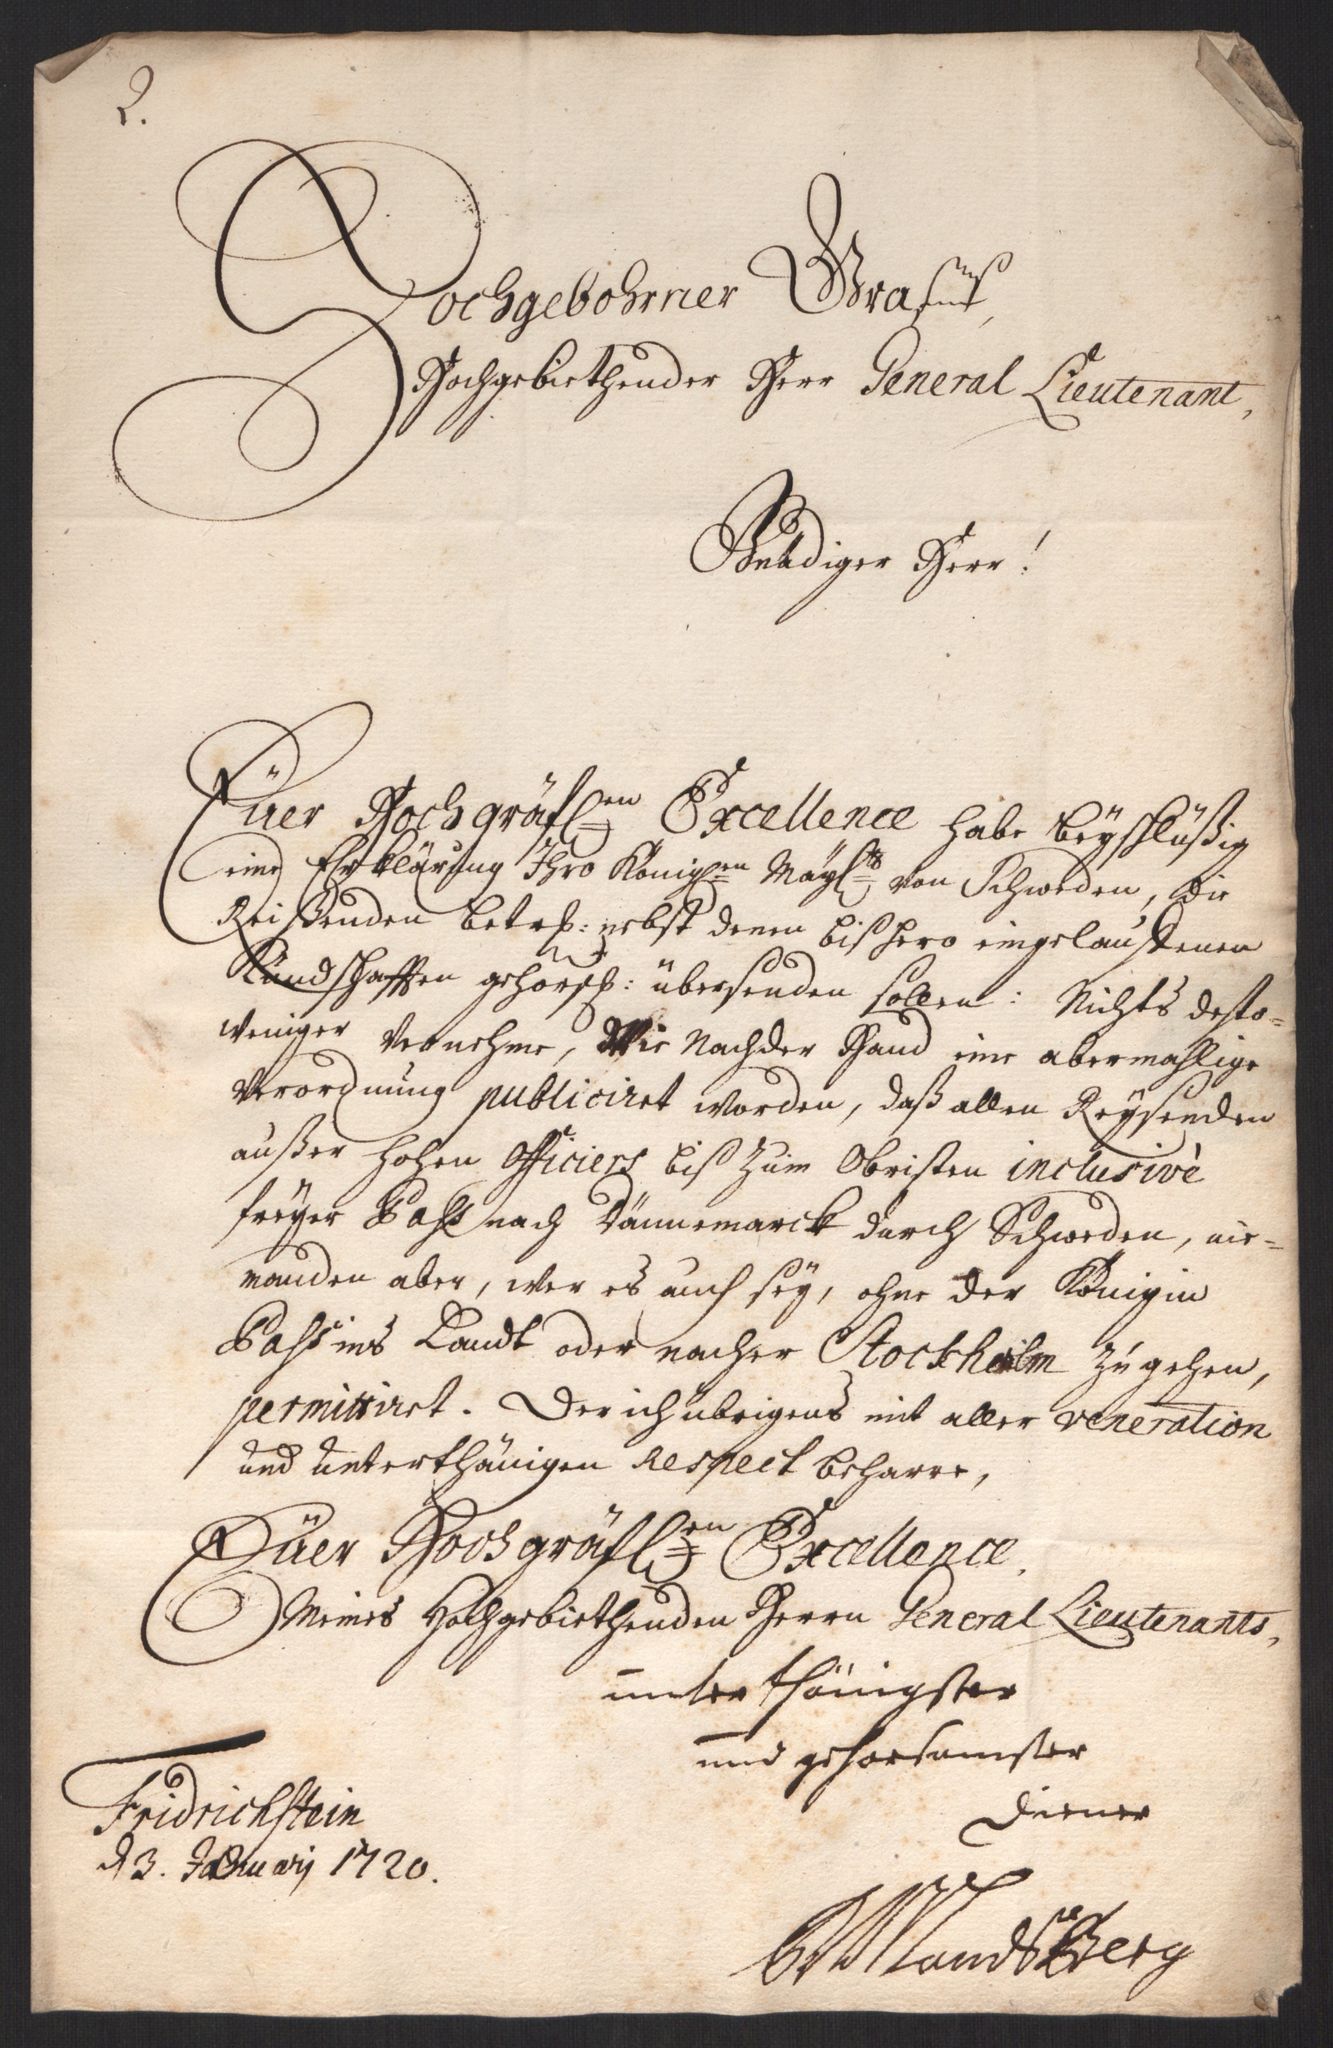 2.
Hochgebohrner Graf,
Hochgebiethender Herr General Lieutenant,
Gnädiger Herr!
Eüer Hochgräfl:en Excellence habe beyschlüßig
eine Erklärung Ihro Königl:en Mayst:ts von Schweden, die
Reißenden betrf: nebst denen bißhero eingelauffenen
Kundschafften gehorsl: übersenden sollen: Nichts desto-
weniger vernehme, Wie nach der Hand eine abermahlige
Verordnung publiciret worden, daß allen Reysenden
außer hohen Officiers biß zum Obristen inclusivè
freyer Pass nach Dännemarck durch Schweden, nie-
manden aber, wer es auch sey, ohne der Königin
Pass ins Landt oder nacher Stockholm zu gehen,
permittiret. Der ich übrigens mit aller veneration
und unterthänigen Respect beharre,
Eüer Hochgräfl:en Excellence,
Meines Hochgebiethenden Herrn General Lieutenants,
unterthänigster
und gehorsamster
Diener
Fridrichstein
d 3. Januarij 1720.
Landsberg